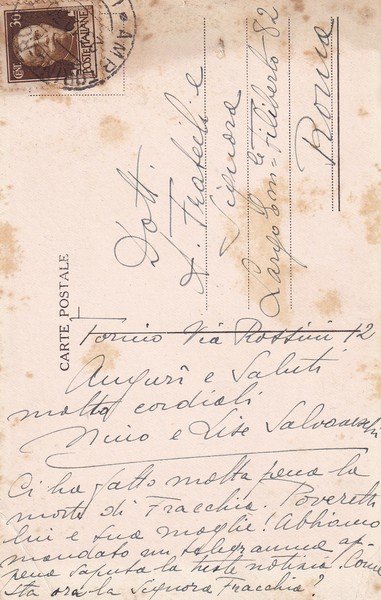 30
CENT
POSTE ITALIANE
CARTE POSTALE
Dott.
A. Frateili e
Signora
Largo Em.le Filiberto 82
Roma
Torino Via Rossini 12
Auguri e saluti
molto cordiali
Nino e Lise
Ci ha fatto molta pena la
morte di Fracchia. Poveretti
lui e sua moglie! Abbiamo
mandato un telegramma ap-
pena saputa la triste notizia. Come
sta ora la Signora Fracchia?